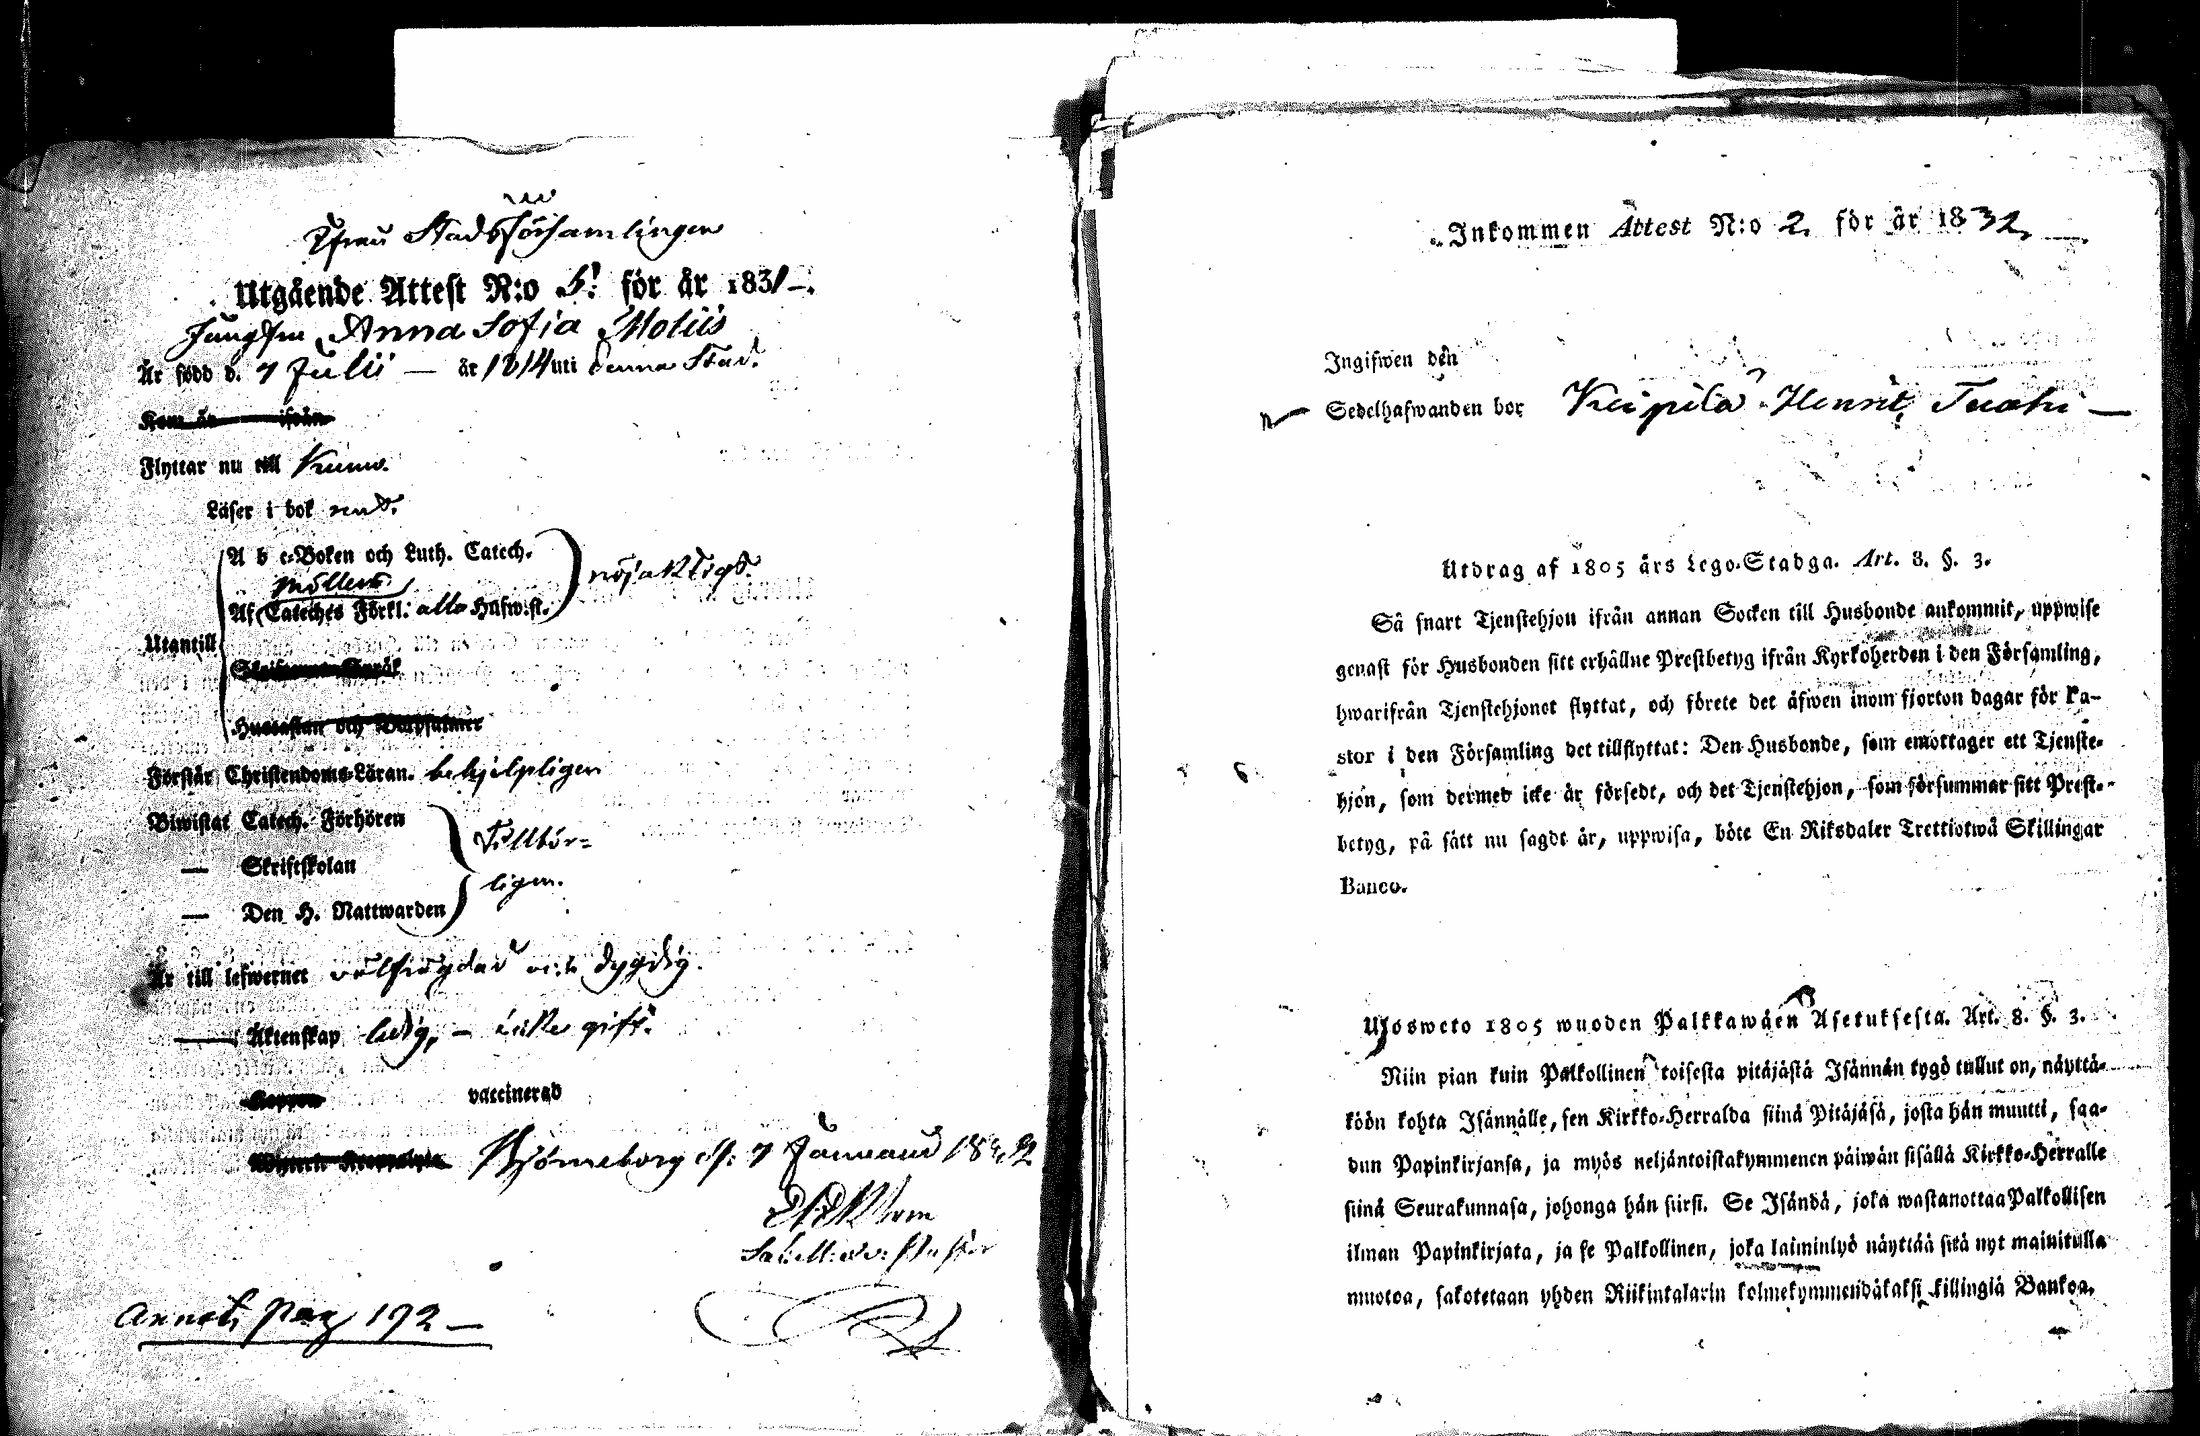 Ifrån Stadsförsamlingen
Utgående Attest N:o 5. för år 1831.
Jungfrun Anna Sofia Molius
Är född d. 7 Julii — år 1814 uti denna Stad.
Kom år ifrån
Flyttar nu till
Läser i bok
A b c-Boken och Luth. Catech.
Möllers
Af Cateches Förkl: alla Hufwst. nöjaktigt.
Utantill
Skriftenes Språk
Hustaflan och Botpsalmer
Förstår Christendoms-Läran. behjelpligen
Biwistat Catech. Förhören
— Skriftskolan
— Den H. Nattwarden
Tillbör=
ligen.
Är till lefwernet välfrägdad och dygdig.
— Äktenskap ledig, — icke gift.
Koppor vaccinerad
Björneborg d. 7 Januarii 1832
Annot. pag 192 —
Inkommen Attest N:o 2. för år 1832.
Ingifwen den
Sedelhafwanden bor Keipilä Henrik Tuohi —
Utdrag af 1805 års Lego-Stadga. Art. 8. §. 3.
Så snart Tjenstehjon ifrån annan Socken till Husbonde ankommit, uppwise
genast för Husbonden sitt erhållne Prestbetyg ifrån Kyrkoherden i den Församling,
hwarifrån Tjenstehjonet flyttat, och förete det äfwen inom fjorton dagar för Pa-
stor i den Församling det tillflyttat: Den Husbonde, som emottager ett Tjenste-
hjon, som dermed icke är försedt, och det Tjenstehjon, som försummar sitt Prest-
betyg, på sätt nu sagdt är, uppwisa, böte En Riksdaler Trettiotwå Skillingar
Banco.
Ulosweto 1805 wuoden Palkkawäen Asetuksesta. Art. 8. §. 3.
Niin pian kuin Palkollinen toisesta pitäjästä Isännän tygö tullut on, näyttä-
köön kohta Isännälle, sen Kirkko-Herralda siinä Pitäjäsä, josta hän muutti, saa-
dun Papinkirjansa, ja myös neljäntoistakymmenen päiwän sisällä Kirkko-Herralle
siinä Seurakunnasa, johonga hän siirsi. Se Isändä, joka wastanottaa Palkollisen
ilman Papinkirjata, ja se Palkollinen, joka laiminlyö näyttää sitä nyt mainitulla
muotoa, sakotetaan yhden Riikintalarin kolmekymmendäkaksi killingiä Bankoa.